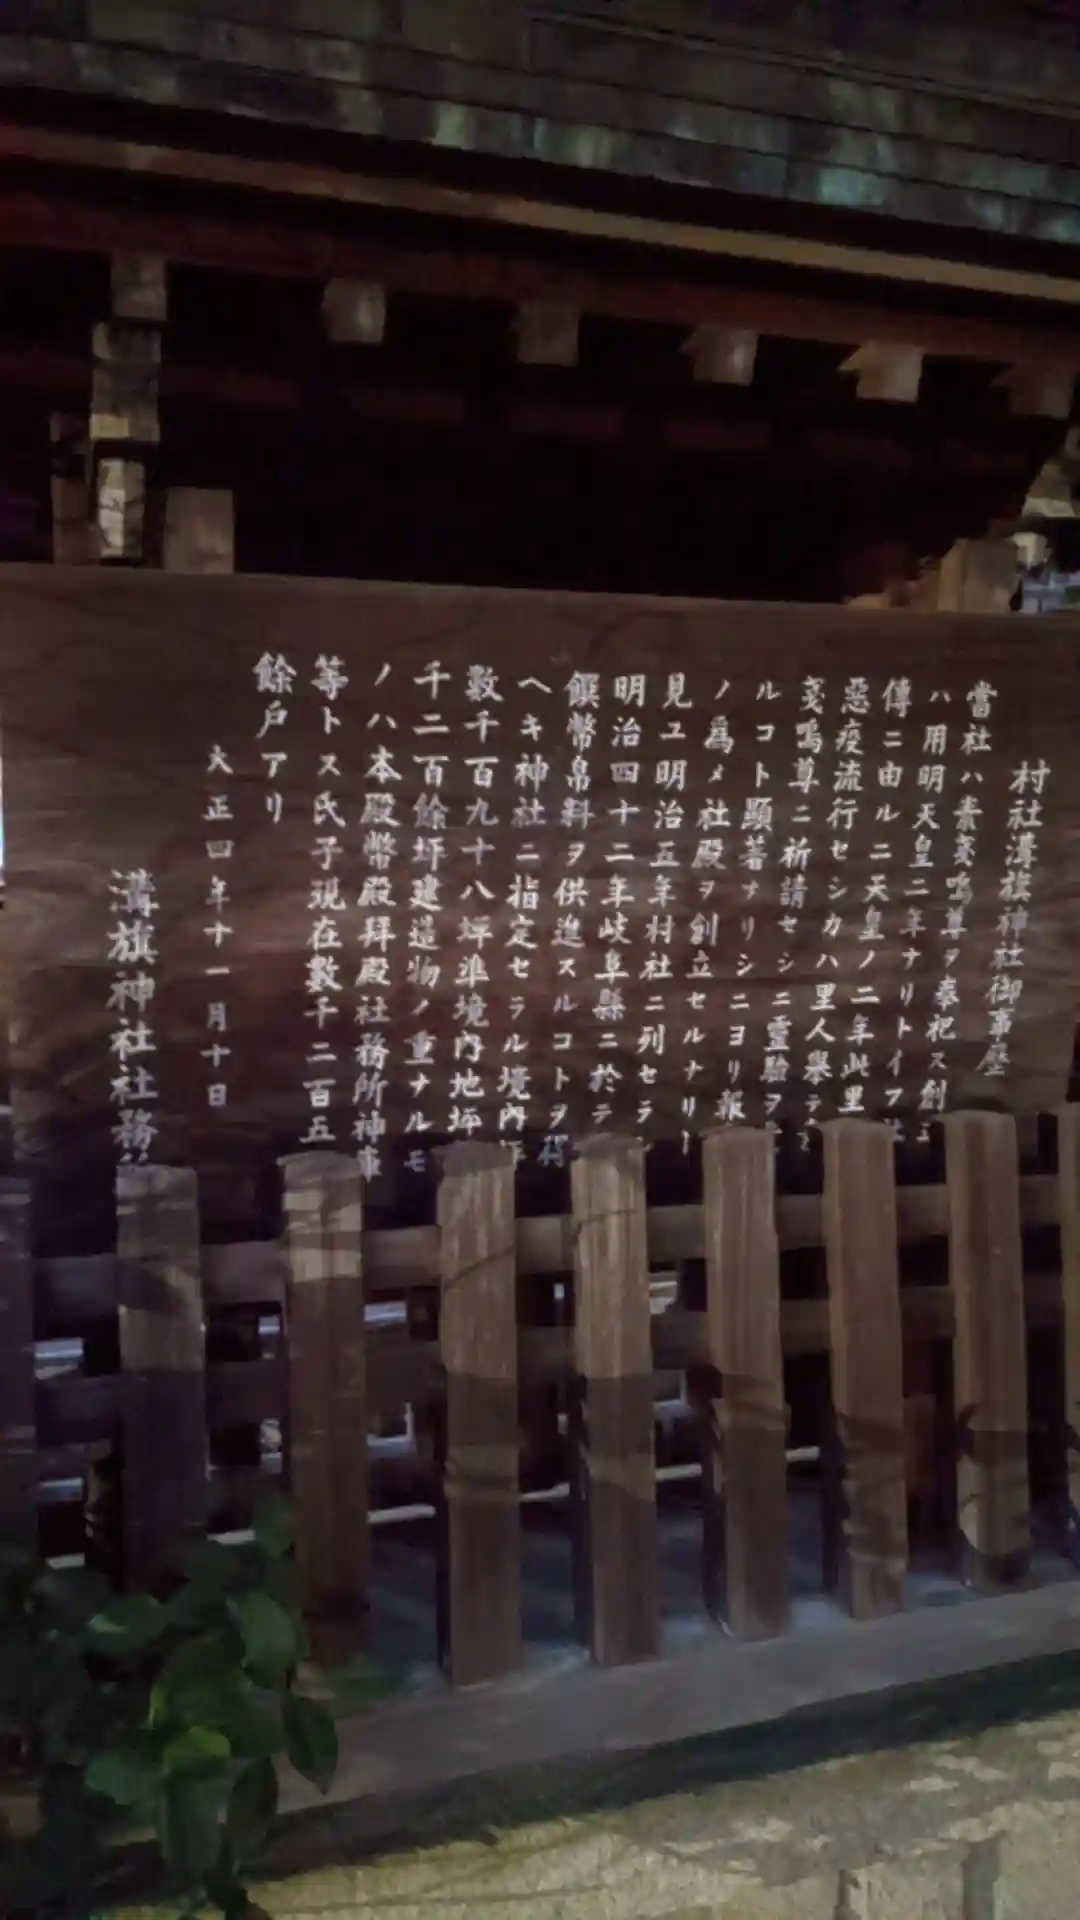 村社溝旗神社御事歴
當社ハ素戔嗚尊ヲ奉祀ス創立
ハ用明天皇二年ナリトイフ社
傳ニ由ルニ天皇ノ二年此里
惡疫流行セシカハ里人擧テ
戔嗚尊ニ祈請セシニ靈驗ヲ
ルコト顯著ナリシニヨリ報
ノ爲メ社殿ヲ創立セルナリ
見ユ明治五年村社ニ列セラ
明治四十二年岐阜縣ニ於テ
饌幣帛料ヲ供進スルコトヲ得
ヘキ神社ニ指定セラル境内坪
數千百九十八坪準境内地坪
千二百餘坪建造物ノ重ナルモ
ノハ本殿幣殿拜殿社務所神庫
等トス氏子現在數千二百五
餘戶アリ
大正四年十一月十日
溝旗神社社務